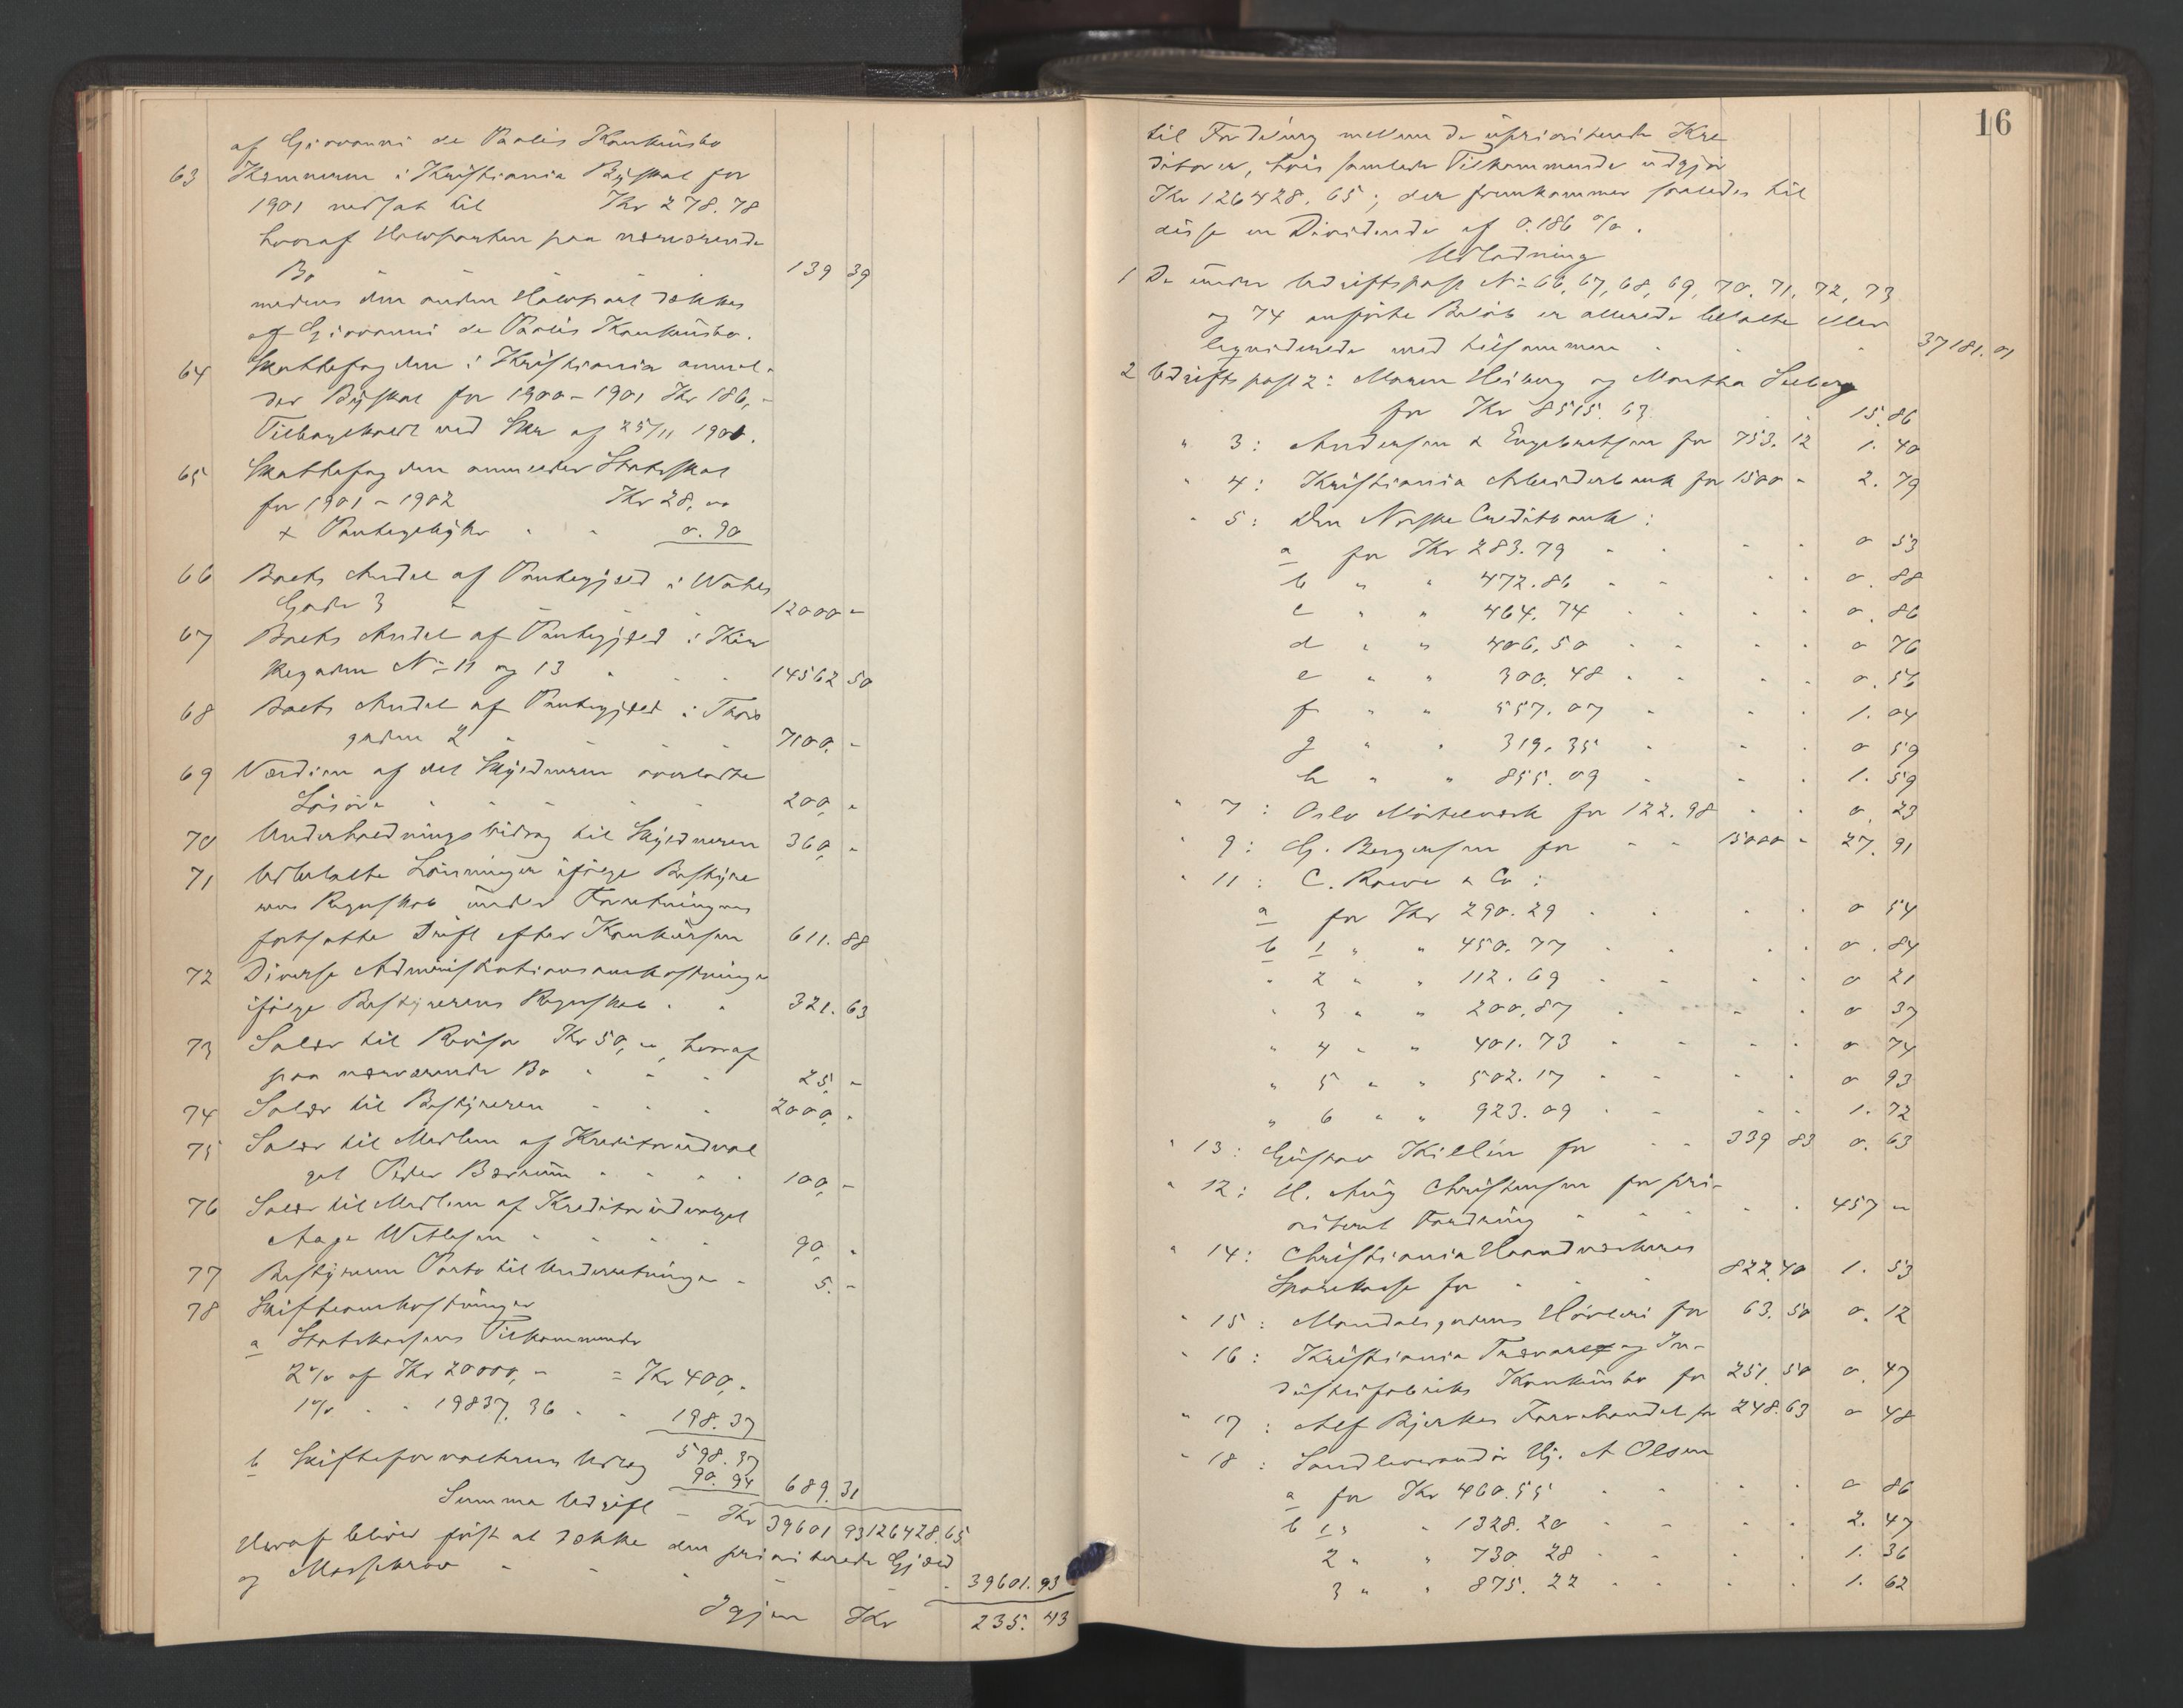 af Giovanni de Paolis Konkursbo
63 Kemneren i Kristiania Byskat for
1901 nedsat til Kr 278.78
hvoraf Halvparten paa nærværende
Bo " " " 139 39
medens den anden Halvpart dækkes
af Giovanni de Paolis Konkursbo.
64 Skattefogden i Kristiania anmel-
der Byskat for 1900-1901 Kr 186,-
Tilbagekaldt ved Skr af 25/11 1901.
65 Skattefogden anmelder Statsskat
for 1901-1902 Kr 28,00
+ Pantegebyhr " " 0.90
66 Boets Andel af Pantegjæld i Waldes
Gade 3 " " " 12000 -
67 Boets Andel af Pantegjæld i Kir
kegaden No 11 og 13 " " " 14562 50
68 Boets Andel af Pantegjæld i Thors
gaden 2 " " " 7100, -
69 Værdien af det Skyldneren overladte
Løsøre " " " 200, -
70 Underholdningsbidrag til Skyldneren 360, -
71 Udbetalte Lønninger ifølge Bestyre
rens Regnskab under Forretningens
fortsatte Drift efter Konkursen 611. 88
72 Diverse Administrationsomkostninger
ifølge Bestyrerens Regnskab " " 321. 63
73 Salær til Revisor Kr 50,-, hvoraf
paa nærværende Bo " " " 25, -
74 Salær til Bestyreren " " " 2000, -
75 Salær til Medlem af Kreditorudval
get Peder Bærum " " " 100, -
76 Salær til Medlem af Kreditorudvalget
Aage " " " 90, -
77 Bestyreren Porto til Underretninger - 5. -
78 Skifteomkostninger
a Statskassens Tilkommende
2% af Kr 20000,- = Kr 400,-
1% " " 19837.36 " " 198.37
598.37
b Skifteforvalterens Udlæg 90.94 689.31
Summa Udgift - Kr 39601 93 126428.65
Heraf bliver først at dække den prioriterede Gjæld
og Massekrav " " " 39601.93
Igjen Kr 235.43
16
til Fordeling mellem de uprioriterede Kre
ditorer, hvis samlede Tilkommende udgjør
Kr 126428.65; der fremkommer saaledes til
disse en Dividende af 0.186 %.
Udlodning
1 De under Udgiftspost No 66, 67, 68, 69, 70, 71, 72, 73
og 74 anførte Beløb er allerede betalte eller
liqviderede med tilsammen " " " 37181.01
2 Udgiftspost 2: Maren Heiberg og Martha Seeberg
for Kr 8515.63 " " 15.86
" 3: Andersen & Engebretsen for 753.12 1.40
" 4: Kristiania Arbeiderbank for 1500 - 2.79
" 5: Den Norske Creditbank:
a for Kr 283.79 " " " " 0 53
b " " 472.86 " " " " 0.88
c " " 464.74 " " " " 0.86
d " " 406.50 " " " " 0 76
e " " 300.48 " " " " 0.56
f " " 557.07 " " " 1.04
g " " 319.35 " " " 0 59
h " " 855.09 " " " 1.59
" 7: Oslo Mørtelværk for 122.98 " " 0.23
" 9: G. Bergersen for " " 15000 - 27.91
" 11: C. Rowe & Co:
a for Kr 290.29 " " " " 0 54
b 1 " " 450.77 " " " " 0.84
" 2 " " 112.69 " " " " 0 21
" 3 " " 200.87 " " " 0 37
" 4 " " 401.73 " " " " 0 74
" 5 " " 502.17 " " " " 0 93
" 6 " " 923.09 " " " " 1.72
" 13: Gustav Killin for " " 339 83 0.63
" 12: H. Aug Christensen for pri-
oriteret Fordring " " " " 457 -
" 14: Christiania Haandværkeres
Sparekasse for " " " 822.40 1.53
" 15: Mandalsgadens Høvleri for 63.50 0.12
" 16: Kristiania Trævare og In-
dustrifabriks Konkursbo for 251.50 0.47
" 17: Alf Bjerkes Farvehandel for 248.63 0 48
" 18: Sandleverandør Hj. A Olsen
a for Kr 460.55 " " " " 0 86
b 1 " " 1328.20 " " " " 2.47
2 " " 730.28 " " " " 1.36
3 " " 875.22 " " " " 1.62